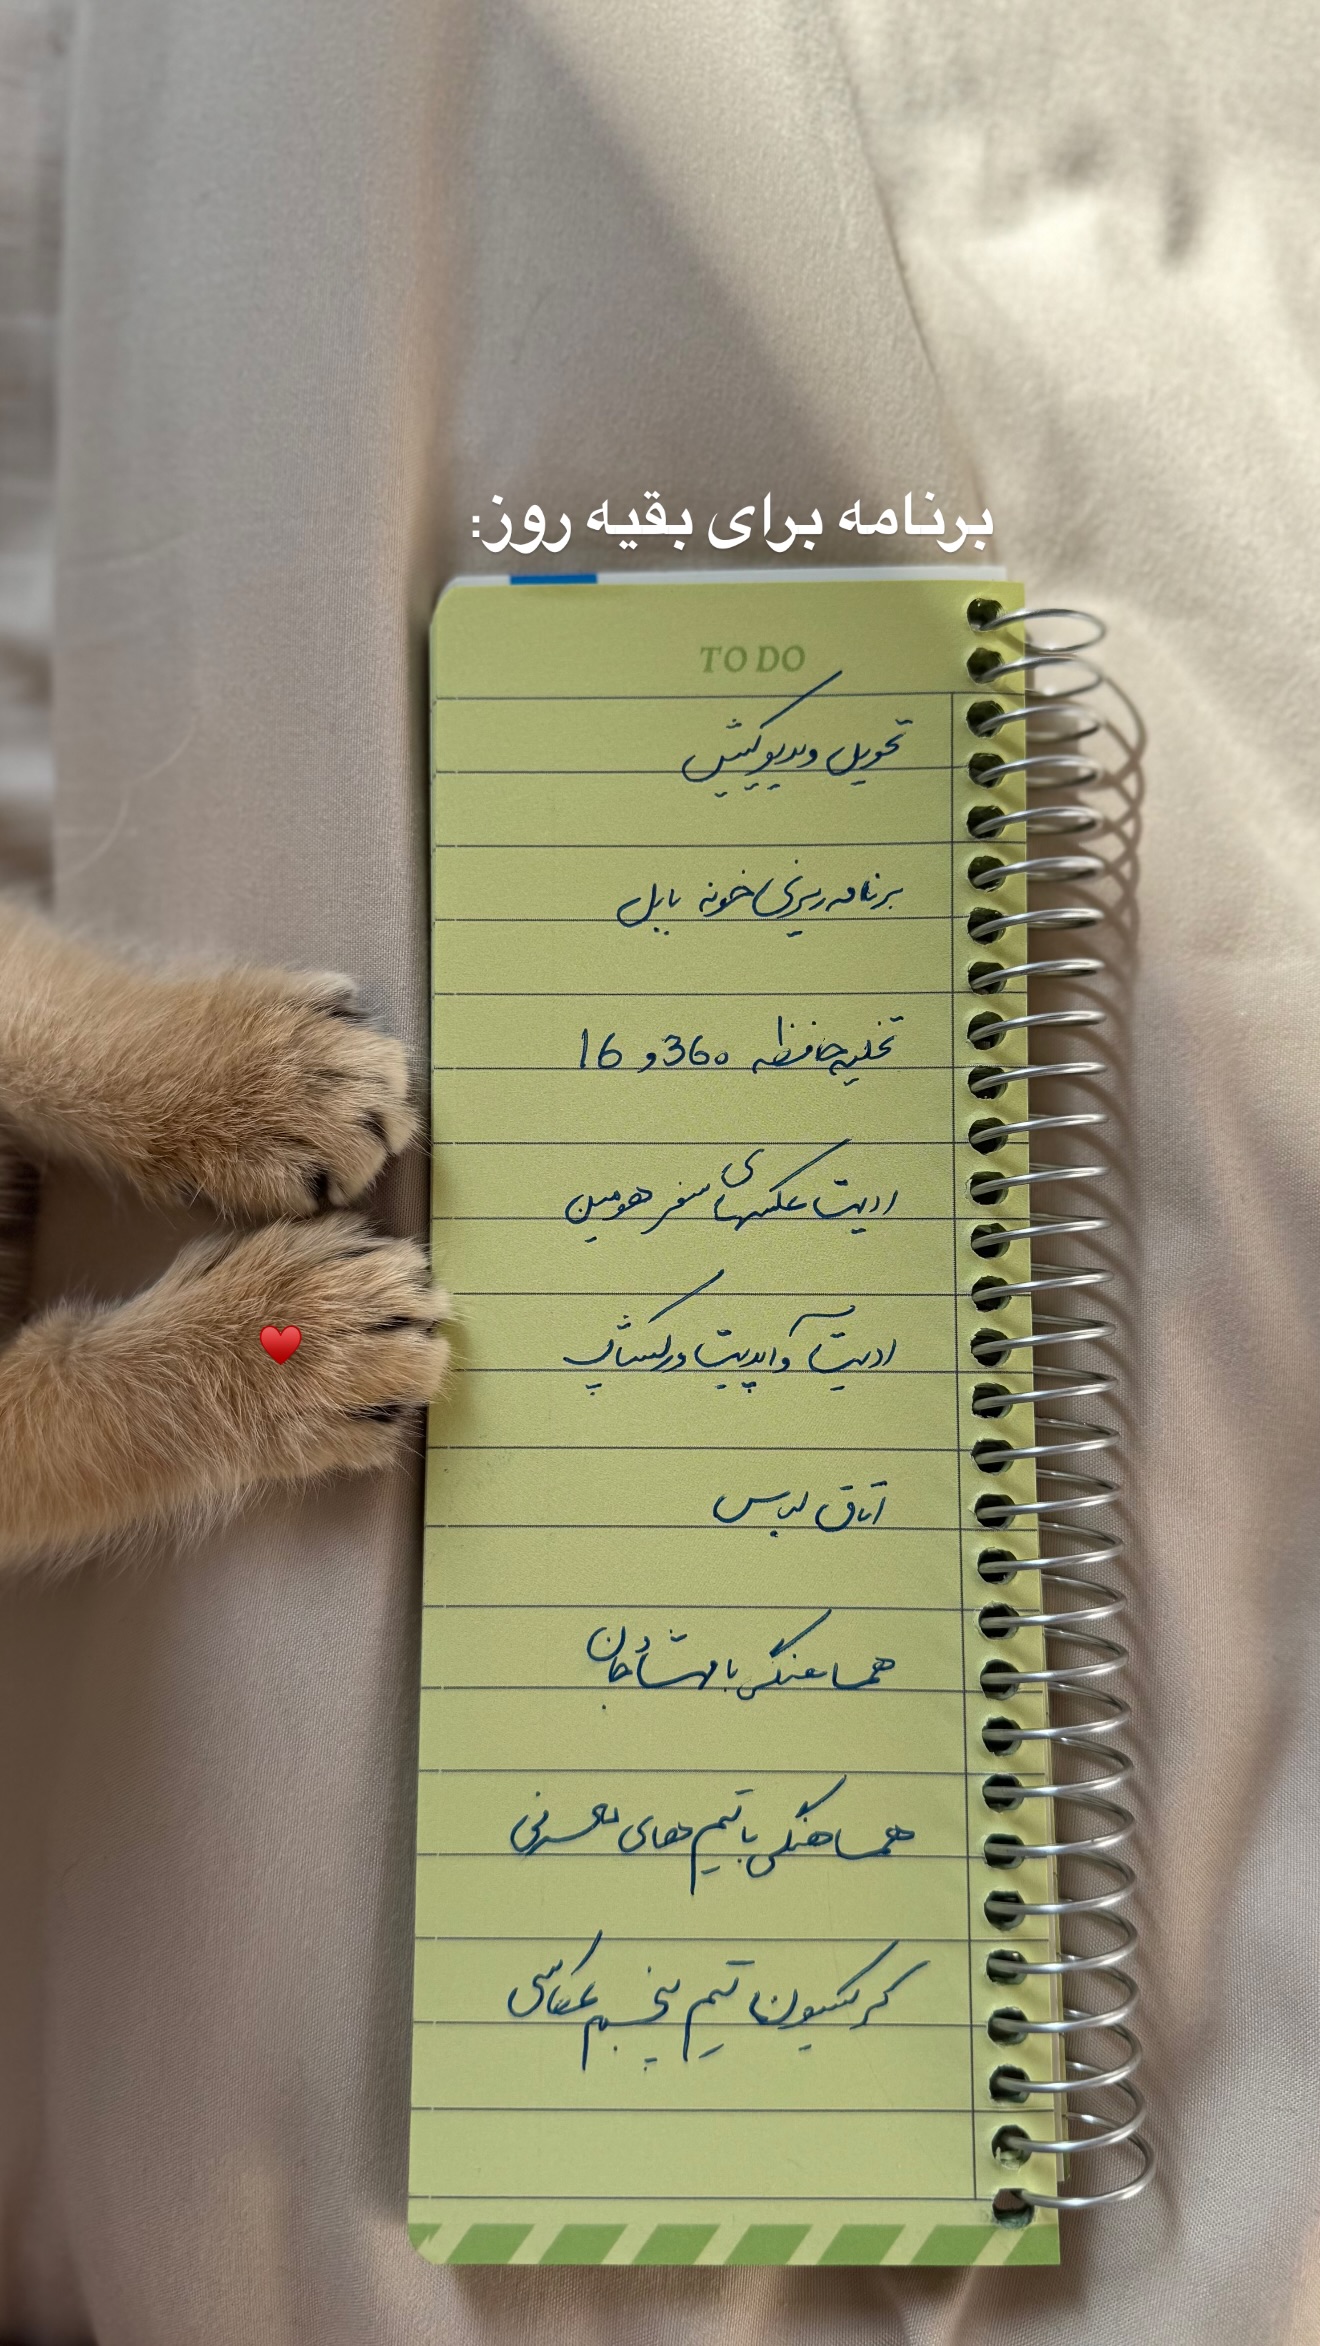 برنامه برای بقیه روز:
TO DO
تحویل ویدیو کیش
برنامه ریزی خونه بابل
تخلیه حافظه 360 و 16
ادیت عکسهای سفر هومین
ادیت و آپدیت ورکشاپ
اتاق لباس
هماهنگی با مهشاد جان
هماهنگی با تیم های
کرکسیون تیم پنجم عکاسی